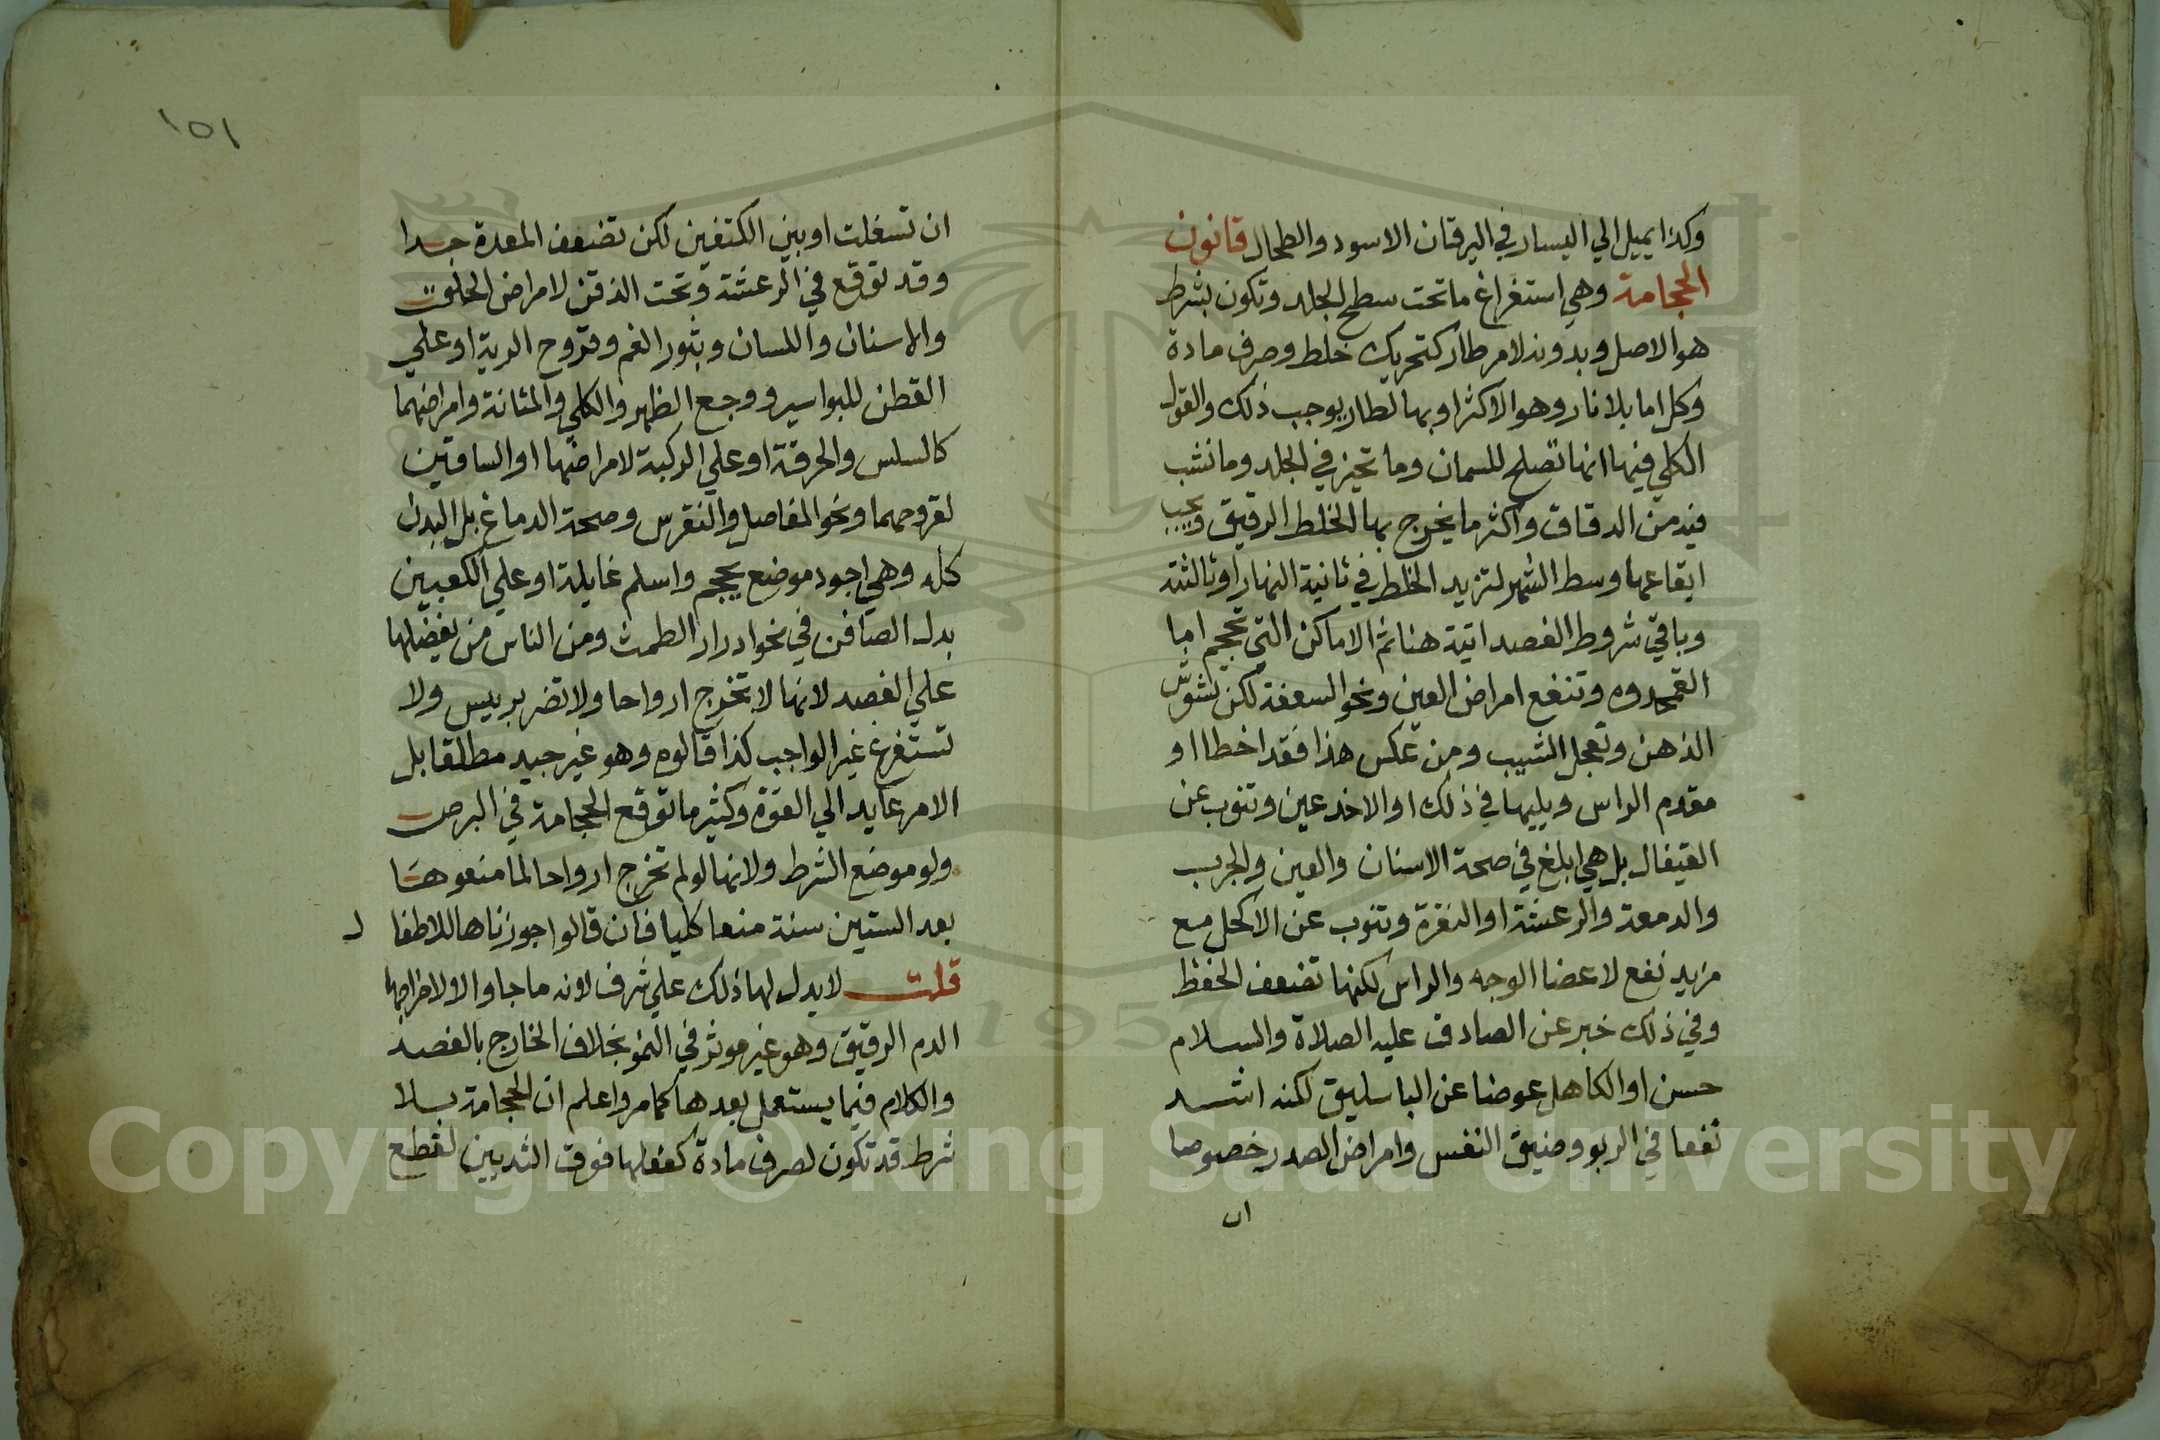 وكذا يميل الي اليسار في اليرقان الاسود والطحال قانون
الحجامة وهي استفراغ ما تحت سطح الجلد وتكون بشرط
هو الاصل وبدونه لامر طار كتحريك خلط وصرف مادة
وكل اما بلا نار وهو الاكثر او بها لطار يوجب ذلك والقول
الكلي فيها انها تصلح للسمان وما تحيز في الجلد وما نشب
فيه من الدقاق واكثر ما يخرج بها الخلط الرقيق ويجب
ايقاعها وسط الشهر لتزيد الخلط في ثانية النهار او ثالثته
وباقي شروط الفصد اتية هنا ثم الاماكن التي تحجم اما
القمحدوه وتنفع امراض العين ونحو السعفة لكن تشوش
الذهن وتعجل الشيب ومن عكس هذا فقد اخطا او
مقدم الراس ويليها في ذلك او الاخدعين وتنوب عن
القيفال بل هي ابلغ في صحة الاسنان والعين والجرب
والدمعة والرعشة او النقرة وتنوب عن الاكحل مع
مزيد نفع لاعضا الوجه والراس لكنها تضعف الحفظ
وفي ذلك خبر عن الصادق عليه الصلاة والسلام
حسن او الكاهل عوضا عن الباسليق لكنه اشد
نفعا في الربو وضيق النفس وامراض الصدر خصوصا
ان
١٥١
ان تسفلت او بين الكتفين لكن تضعف المعدة جدا
وقد توقع في الرعشة وتحت الذقن لامراض الحلق
والاسنان واللسان وبثور الفم وقروح الرية او علي
القطن للبواسير ووجع الظهر والكلي والمثانة وامراضهما
كالسلس والحرقة او علي الركبة لامراضها او الساقين
لقروحهما ونحو المفاصل والنقرس وصحة الدماغ بل البدن
كله وهي اجود موضع يحجم واسلم غايلة او علي الكعبين
بدل الصافن في نحو ادرار الطمث ومن الناس من يفضلها
علي الفصد لانها لا تخرج ارواحا ولا تضر بريس ولا
تستفرغ غير الواجب كذا قالوه وهو غير جيد مطلقا بل
الامر عايد الي القوة وكثير ما توقع الحجامة في البرص
ولو موضع الشرط ولانها لو لم تخرج ارواحا لما منعوها
بعد الستين سنة منعا كليا فان قالوا جوزناها للاطفال
قلت لا يدل لها ذلك علي شرف لانه ما جاوا الا لاخراجها
الدم الرقيق وهو غير موثر في النمو بخلاف الخارج بالفصد
والكلام فيما يستعمل بعدها كما مر واعلم ان الحجامة بلا
شرط قد تكون لصرف مادة كفعلها فوق الثديين لقطع
Copyright © King Saud University
1957